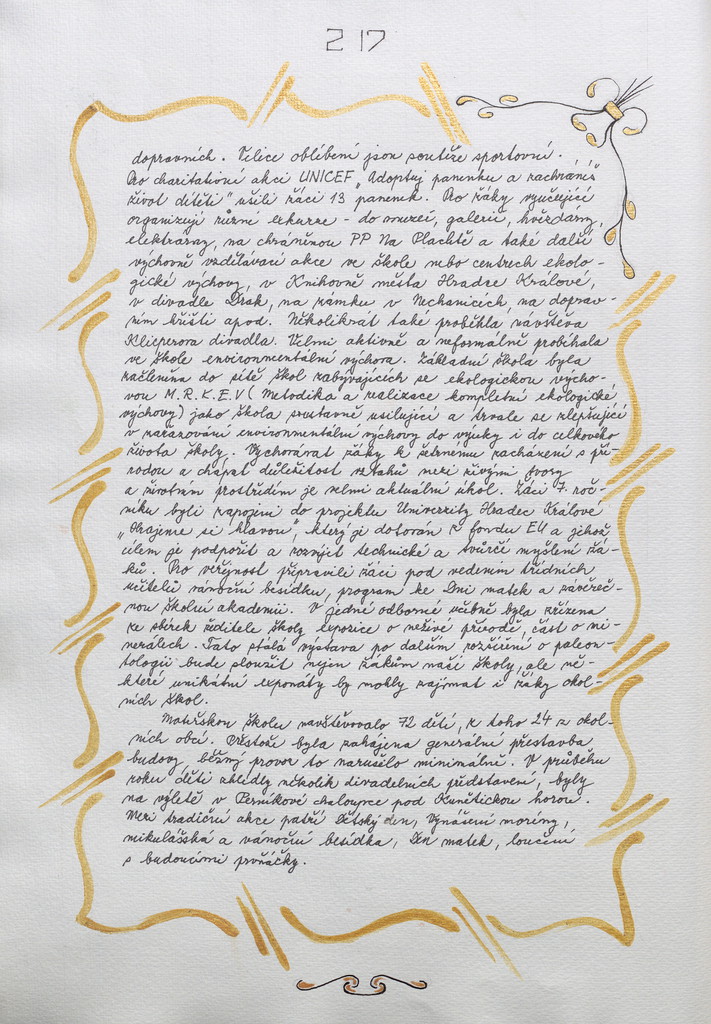 217
dopravních. Velice oblíbení jsou soutěže sportovní.
Pro charitativní akci UNICEF „Adoptuj panenku a zachráníš
život dítěti" ušili žáci 13 panenek. Pro žáky vyučující
organizují různé exkurze - do muzeí, galerií, hvězdárny,
elektrárny, na chráněnou PP Na Plachtě a také další
výchovně vzdělávací akce ve škole nebo centrech ekolo-
gické výchovy, v Knihovně města Hradce Králové,
v divadle Drak, na zámku v Nechanicích, na doprav-
ním hřišti apod. Několikrát také proběhla návštěva
Klicperova divadla. Velmi aktivně a neformálně probíhala
ve škole environmentální výchova. Základní škola byla
začleněna do sítě škol zabývajících se ekologickou výcho-
vou M.R.K.E.V (Metodika a realizace kompletní ekologické
výchovy) jako škola soustavně usilující a trvale se zlepšující
v zařazování environmentální výchovy do výuky i do celkového
života školy. Vychovávat žáky k šetrnému zacházení s pří-
rodou a chápat důležitost vztahů mezi živými tvory
a životním prostředím je velmi aktuální úkol. Žáci 7. roč-
níku byli zapojeni do projektu Univerzity Hradec Králové
„Hrajeme si hlavou", který je dotován z fondu EU a jehož
cílem je podpořit a rozvíjet technické a tvůrčí myšlení žá-
ků. Pro veřejnost připravili žáci pod vedením třídních
učitelů vánoční besídku, program ke Dni matek a závěreč-
nou školní akademii. V jedné odborné učebně byla zřízena
ze sbírek ředitele školy expozice o neživé přírodě, část o mi-
nerálech. Tato stálá výstava po dalším rozšíření o paleon-
tologii bude sloužit nejen žákům naší školy, ale ně-
které unikátní exponáty by mohly zajímat i žáky okol-
ních škol.
Mateřskou školu navštěvovalo 72 dětí, z toho 24 z okol-
ních obcí. Přestože byla zahájena generální přestavba
budovy, běžný provoz to narušilo minimálně. V průběhu
roku děti zhlédly několik divadelních představení, byly
na výletě v Perníkové chaloupce pod Kunětickou horou.
Mezi tradiční akce patří Dětský den, Vynášení moreny,
mikulášská a vánoční besídka, Den matek, loučení
s budoucími prvňáčky.